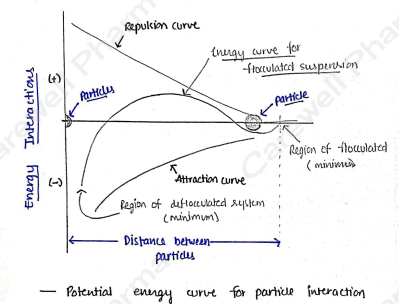 Repulsion curve
Energy curve for
flocculated suspension
(+)
Particles
Particle
Energy Interactions
Region of flocculated
(minimum)
(-)
Attraction curve
Region of deflocculated system
(minimum)
Distance between
particles
— Potential energy curve for particle interaction